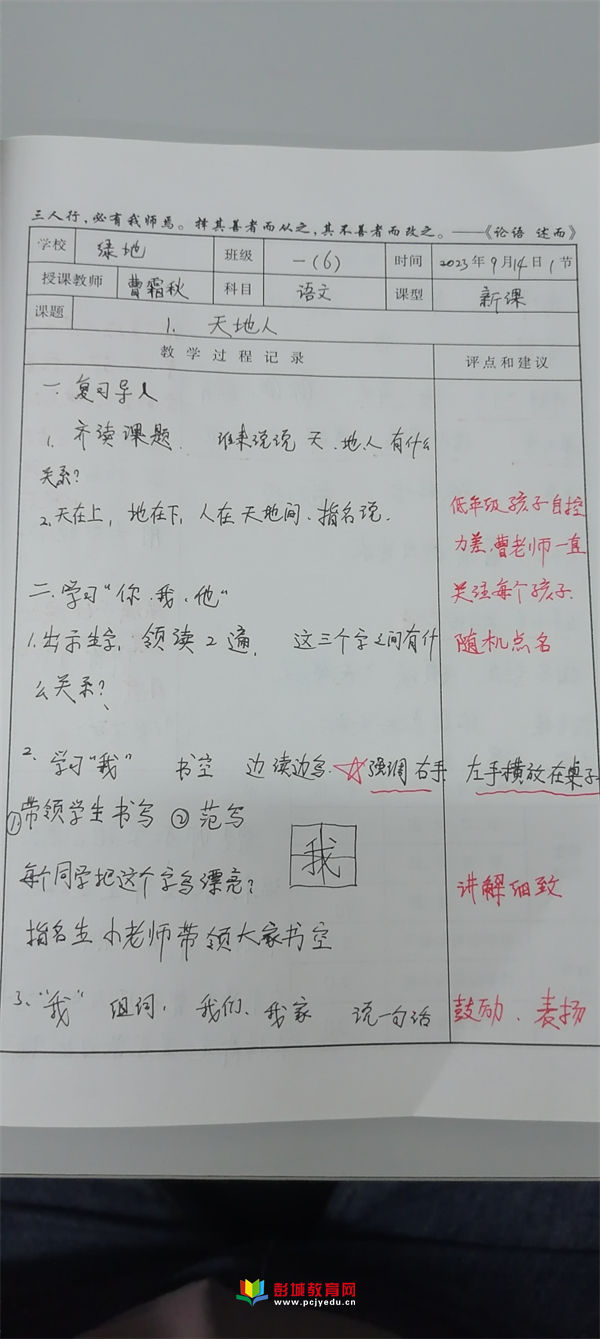 三人行，必有我师焉。择其善者而从之，其不善者而改之。——《论语 述而》
学校 绿地 班级 一(6) 时间 2023年9月14日1节
授课教师 曹霜秋 科目 语文 课型 新课
课题 1. 天地人
教学过程记录 评点和建议
一.复习导入
1. 齐读课题. 谁来说说 天、地、人有什么
关系？
2.天在上，地在下，人在天地间、指名说.
低年级孩子自控
力差，曹老师一直
关注每个孩子.
随机点名
二.学习“你、我、他”
1.出示生字，领读2遍， 这三个字之间有什
么关系？
2、学习“我” 书空 边读边写. ☆强调右手 左手横放在桌子
①带领学生书写 ②范写
我
每个同学把这个字写漂亮？
讲解细致
指名生 小老师带领大家书空
3、“我” 组词， 我们、我家 说一句话
鼓励、表扬
彭城教育网
www.pcjyedu.cn